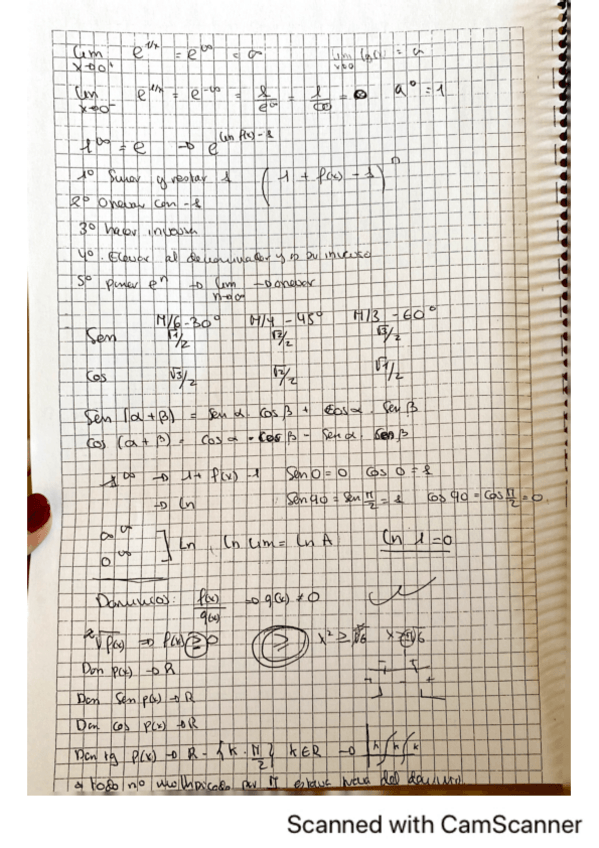 lim x→0⁺ e^1/x = e^∞ = ∞
lim x→0⁻ e^1/x = e^-∞ = 1/e^∞ = 1/∞ = 0 a⁰ = 1
1^∞ = e → e
1º Sumar y restar 1 (1 + f(x) - 1)^n
2º Operar con -1
3º hacer inversa
4º. Elevar al denominador y a su inverso
5º poner eⁿ → lim n→∞ → operar
π/6 - 30º π/4 - 45º π/3 - 60º
Sen √1/2 √2/2 √3/2
Cos √3/2 √2/2 √1/2
Sen (α+β) = Sen α · Cos β + Cos α · Sen β
Cos (α+β) = Cos α · Cos β - Sen α · Sen β
1^∞ → 1 + f(x) - 1 Sen 0 = 0 Cos 0 = 1
→ Ln Sen 90 = Sen π/2 = 1 Cos 90 = Cos π/2 = 0
0^∞ ] Ln, Ln lim = Ln A Ln 1 = 0
Dominios: f(x)/g(x) → g(x) ≠ 0
²√f(x) ⇒ f(x) ≥ 0 ≥
Dom p(x) → R
Dom Sen p(x) → R
Dom Cos p(x) → R
Dom tg p(x) → R - {k · π/2} k ∈ R →
todo nº multiplicado por π fuera del dominio
Scanned with CamScanner